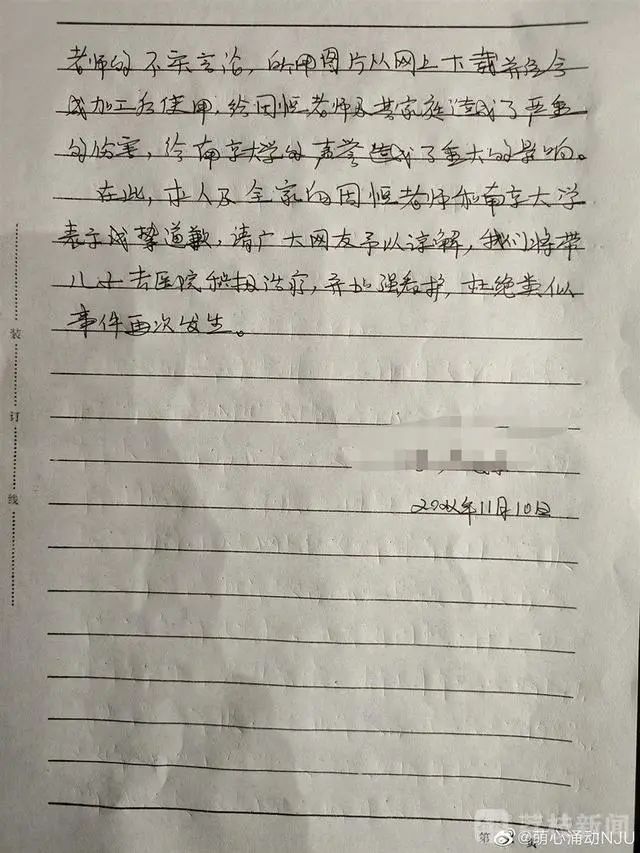 老师的不实言论，所用图片从网上下载并经合
成加工后使用，给因恒老师及其家庭造成了严重
的伤害，给南京大学的声誉造成了重大的影响。
在此，本人及全家向因恒老师和南京大学
表示诚挚道歉，请广大网友予以谅解，我们将带
儿子去医院积极治疗，并加强看护，杜绝类似
事件再次发生。
年11月10日
装
订
线
第
页
荔枝新闻
@萌心涌动NJU